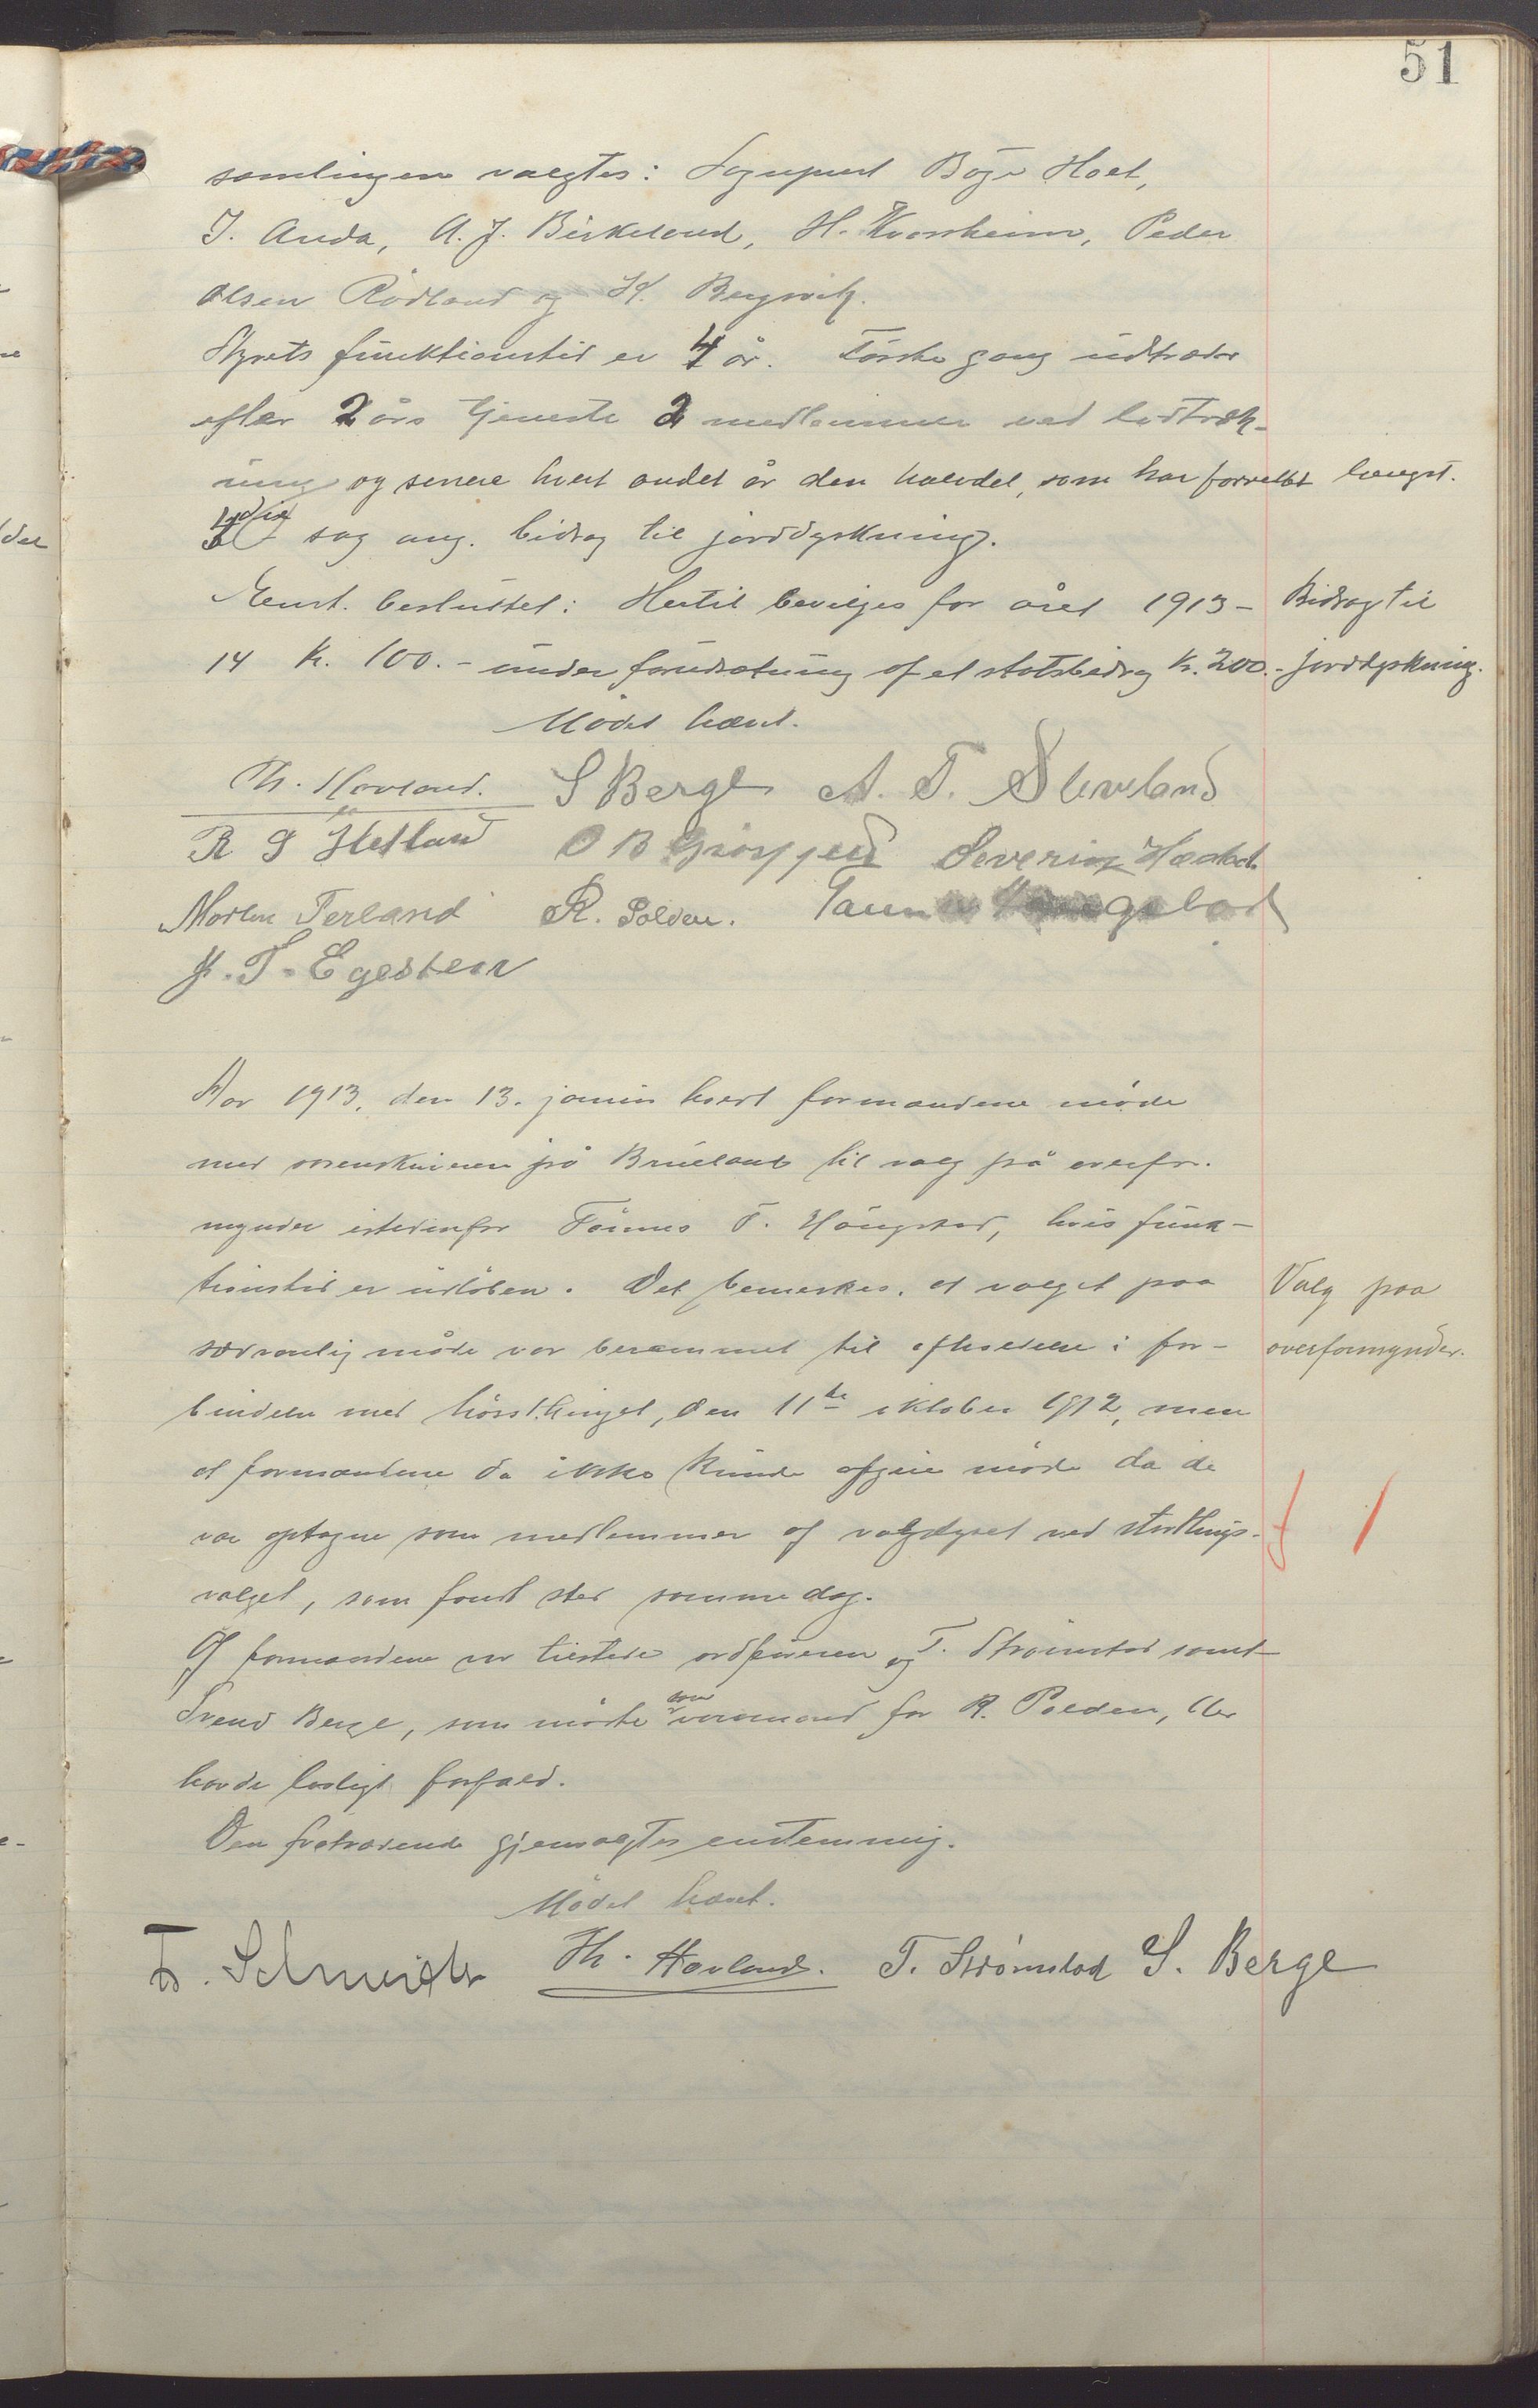 51
samlingen valgtes: Sogneprest Böge Hoel,
J. Anda, A. J. Birkeland, H. Kvasheim, Peder
Olsen Rödland og K. Bergsvik.
Styrets funktionstid er 4 år. Förste gang udtræder
efter 2 års tjeneste 2 medlemmer ved lodtræk-
ning og senere hvert andet år den halvdel, som har forrettet længst.
sag ang. bidrag til jorddyrkning.
Enst. besluttet: Hertil bevilges for året 1913-
14 kr. 100.- under forudsætning af et statsbidrag kr. 200.-
Bidrag til
jorddyrkning.
Mödet hævet.
Th. Hovland. S Berge A. T. Sleveland
R S Hetland O B Gjöysfjeld Severin Hæstad
Morten Terland R. Polden.
J. T. Egesteen
Aar 1913, den 13. januar holdt formandene möde
med sorenskriveren på Brueland til valg på overfor-
mynder istedenfor Tönnes T. Höugstad, hvis funk-
tionstid er udlöben. Det bemerkes, at valget paa
sædvanlig måde var berammet til afholdelse i for-
bindelse med hösttinget, den 11te oktober 1912, men
at formændene da ikke kunde afgive möde da de
var optagne som medlemmer af valgstyret ved stortings-
valget, som fandt sted samme dag.
Valg paa
overformynder.
Af formændene var tilstede ordföreren og T. Strömstad samt
Svend Berge, som mödte som varamand for R. Polden, der
havde lovligt forfald.
Den fratrædende gjenvalgtes enstemmig.
Mödet hævet.
F. Schmidt Th. Hovland. T. Strömstad S. Berge